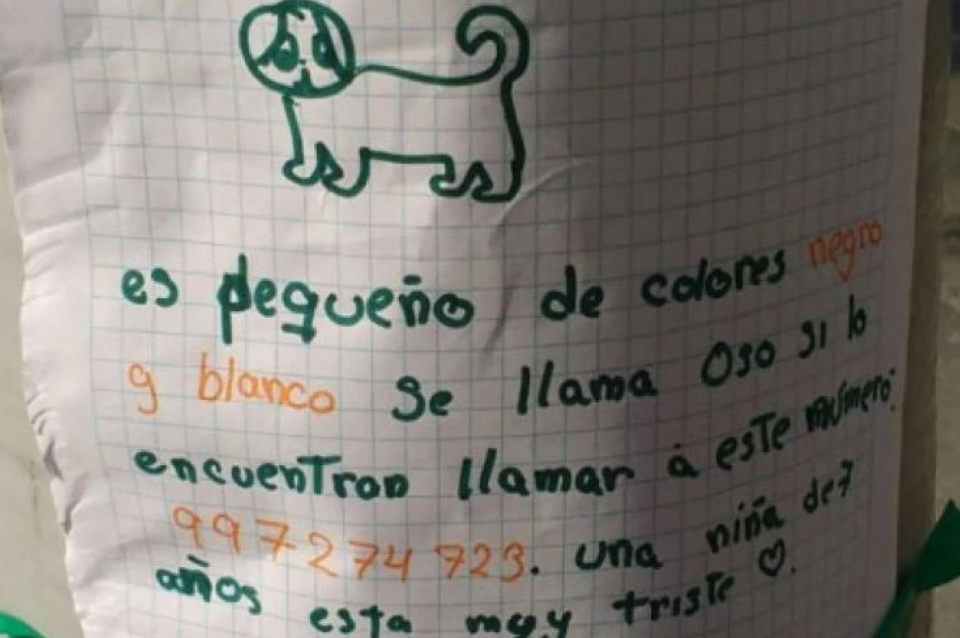 es pequeño de colores negro
y blanco se llama Oso si lo
encuentran llamar a este número:
997274723. una niña de 7
años esta muy triste